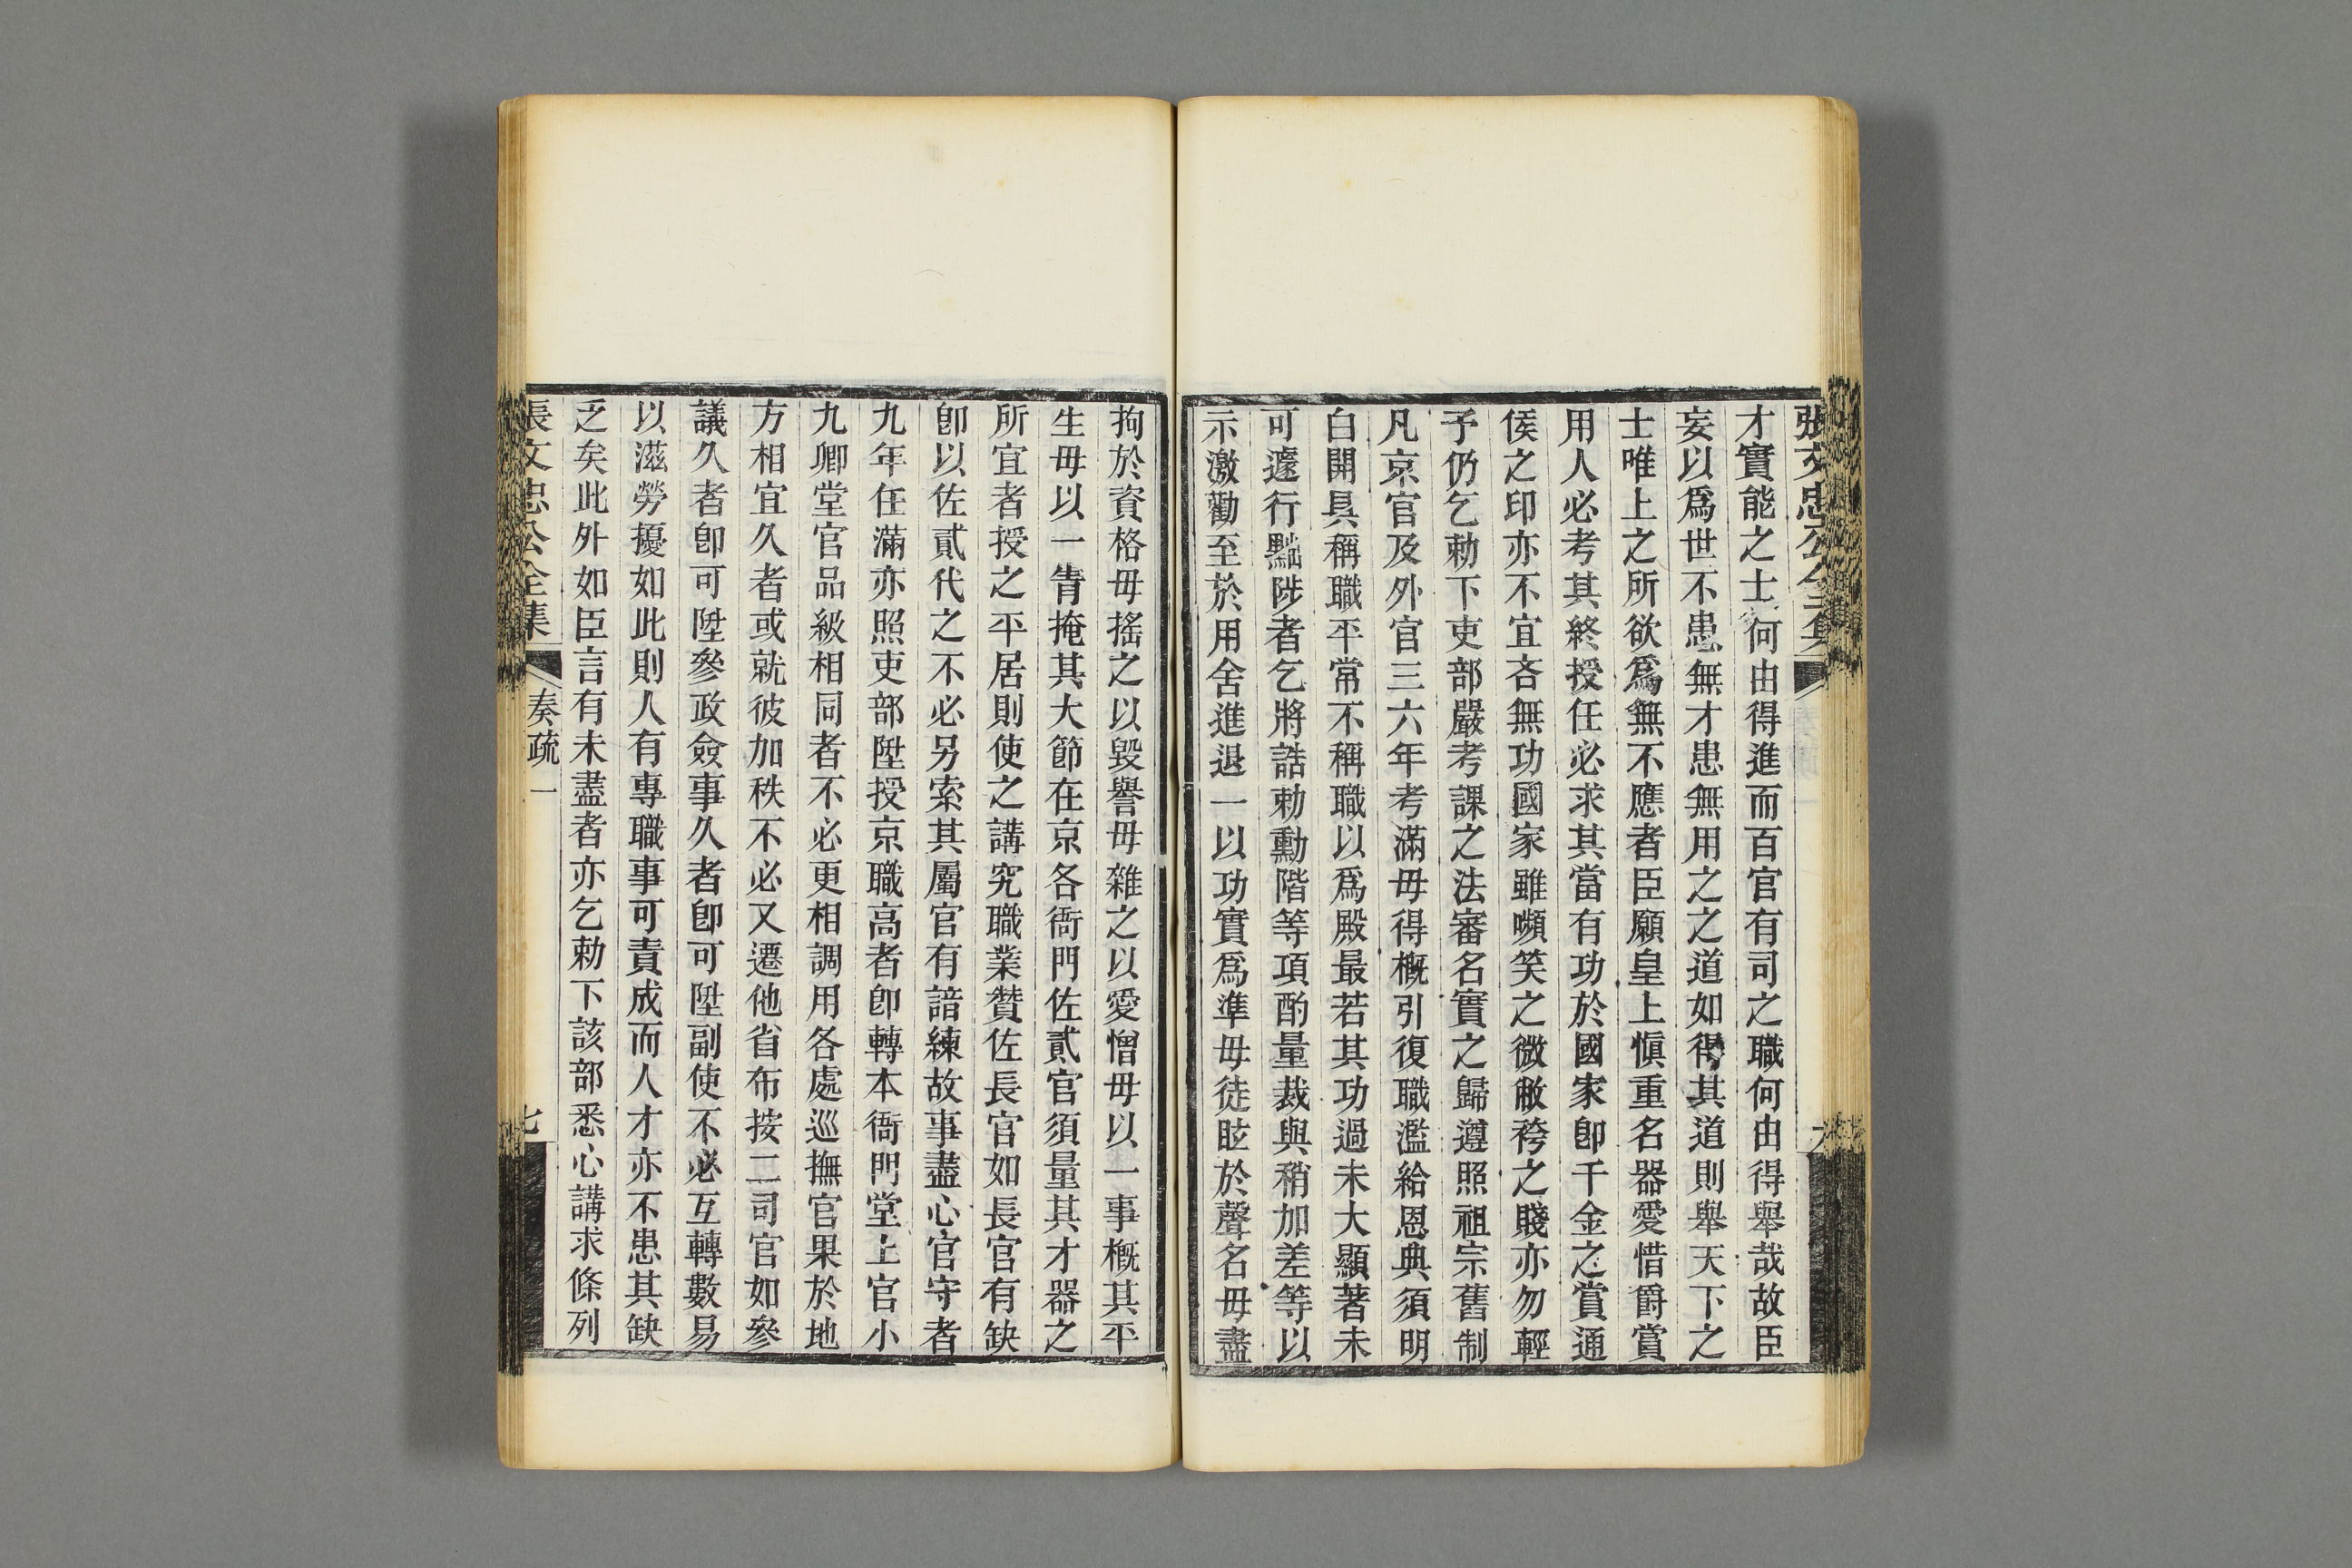 張文忠公全集
六
才實能之士何由得進而百官有司之職何由得舉哉故臣
妄以爲世不患無才患無用之之道如得其道則舉天下之
士唯上之所欲爲無不應者臣願皇上愼重名器愛惜爵賞
用人必考其終授任必求其當有功於國家卽千金之賞通
侯之印亦不宜吝無功國家雖嚬笑之微敝袴之賤亦勿輕
予仍乞勅下吏部嚴考課之法審名實之歸遵照祖宗舊制
凡京官及外官三六年考滿毋得槪引復職濫給恩典須明
白開具稱職平常不稱職以爲殿最若其功過未大顯著未
可遽行黜陟者乞將誥勅勳階等項酌量裁與稍加差等以
示激勸至於用舍進退一以功實爲準毋徒眩於聲名毋盡
拘於資格毋搖之以毀譽毋雜之以愛憎毋以一事槪其平
生毋以一眚掩其大節在京各衙門佐貳官須量其才器之
所宜者授之平居則使之講究職業贊佐長官如長官有缺
卽以佐貳代之不必另索其屬官有諳練故事盡心官守者
九年任滿亦照吏部陞授京職高者卽轉本衙門堂上官小
九卿堂官品級相同者不必更相調用各處巡撫官果於地
方相宜久者或就彼加秩不必又遷他省布按二司官如參
議久者卽可陞參政僉事久者卽可陞副使不必互轉數易
以滋勞擾如此則人有專職事可責成而人才亦不患其缺
乏矣此外如臣言有未盡者亦乞勅下該部悉心講求條列
張文忠公全集
奏疏一
七